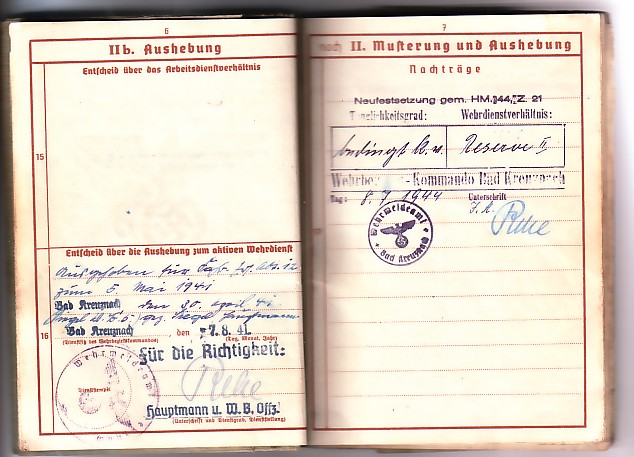 6
IIb. Aushebung
Entscheid über das Arbeitsdienstverhältnis
15
Entscheid über die Aushebung zum aktiven Wehrdienst
Ausgehoben für
zum 5. Mai 1941
Bad Kreuznach den 30. April 41
Hauptmann
16
Bad Kreuznach, den 7. 8. 41.
(Dienstsitz des Wehrbezirkskommandos) (Tag, Monat, Jahr)
Für die Richtigkeit:
Wehrmeldeamt
Dienststempel
Hauptmann u. W. B. Offz.
(Unterschrift und Dienstgrad, Dienststellung)
7
noch II. Musterung und Aushebung
Nachträge
Neufestsetzung gem. HM. 44, Z. 21
Tauglichkeitsgrad: Wehrdienstverhältnis:
bedingt k.v. Reserve II
Wehrbezirks-Kommando Bad Kreuznach
Tag: 8. 7 1944 Unterschrift
I. A.
Wehrmeldeamt
* Bad Kreuznach *